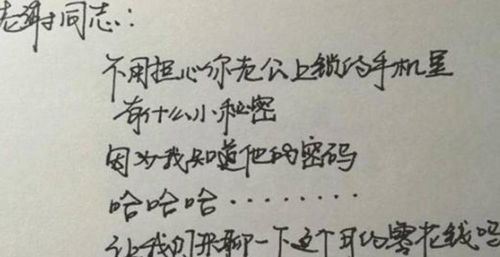 老谢同志:
不用担心你老公上锁的手机里
有什么小秘密
因为我知道他的密码
哈哈哈........
让我们来聊一下这个月的零花钱吗